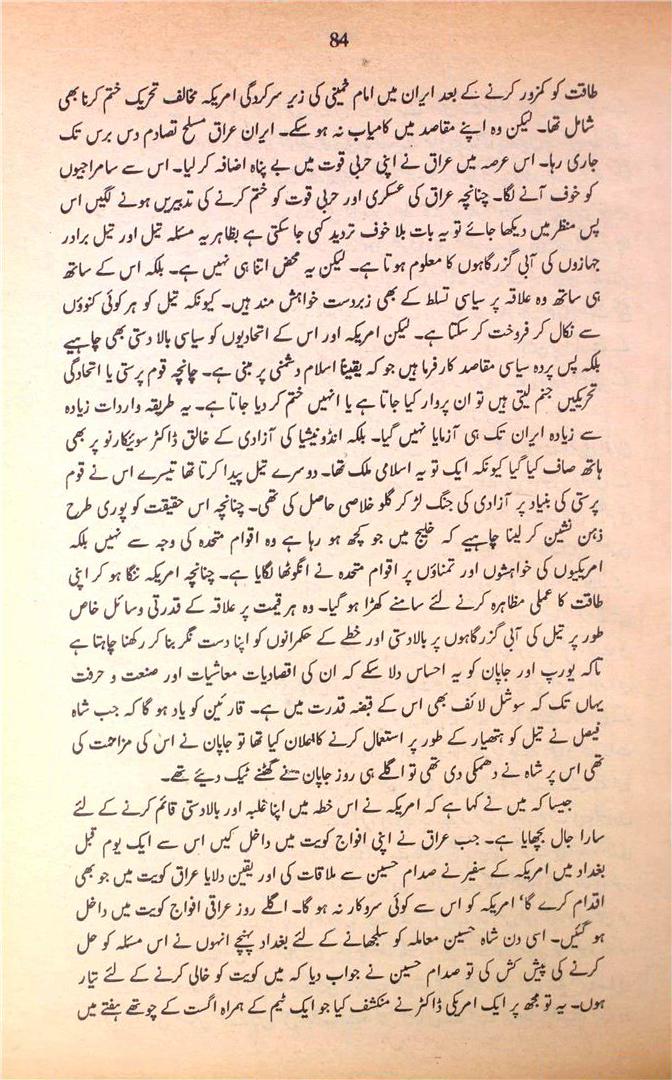 84
طاقت کو کمزور کرنے کے بعد ایران میں امام خمینی کی زیر سرکردگی امریکہ مخالف تحریک ختم کرنا بھی
شامل تھا۔ لیکن وہ اپنے مقاصد میں کامیاب نہ ہو سکے۔ ایران عراق مسلح تصادم دس برس تک
جاری رہا۔ اس عرصہ میں عراق نے اپنی حربی قوت میں بے پناہ اضافہ کر لیا۔ اس سے سامراجیوں
کو خوف آنے لگا۔ چنانچہ عراق کی عسکری اور حربی قوت کو ختم کرنے کی تدبیریں ہونے لگیں اس
پس منظر میں دیکھا جائے تو یہ بات بلا خوف تردید کہی جا سکتی ہے بظاہر یہ مسئلہ تیل اور تیل بردار
جہازوں کی آبی گزرگاہوں کا معلوم ہوتا ہے۔ لیکن یہ محض اتنا ہی نہیں ہے۔ بلکہ اس کے ساتھ
ہی ساتھ وہ علاقہ پر سیاسی تسلط کے بھی زبردست خواہش مند ہیں۔ کیونکہ تیل کو ہر کوئی کنوؤں
سے نکال کر فروخت کر سکتا ہے۔ لیکن امریکہ اور اس کے اتحادیوں کو سیاسی بالا دستی بھی چاہیے
بلکہ پس پردہ سیاسی مقاصد کارفرما ہیں جو کہ یقیناً اسلام دشمنی پر مبنی ہے۔ چانچہ قوم پرستی یا اتحادگی
تحریکیں جنم لیتی ہیں تو ان پر وار کیا جاتا ہے یا انہیں ختم کر دیا جاتا ہے۔ یہ طریقہ واردات زیادہ
سے زیادہ ایران تک ہی آزمایا نہیں گیا۔ بلکہ انڈونیشیا کی آزادی کے خالق ڈاکٹر سوئیکارنو پر بھی
ہاتھ صاف کیا گیا کیونکہ ایک تو یہ اسلامی ملک تھا۔ دوسرے تیل پیدا کرتا تھا تیسرے اس نے قوم
پرستی کی بنیاد پر آزادی کی جنگ لڑ کر گلو خلاصی حاصل کی تھی۔ چنانچہ اس حقیقت کو پوری طرح
ذہن نشین کر لینا چاہیے کہ خلیج میں جو کچھ ہو رہا ہے وہ اقوام متحدہ کی وجہ سے نہیں بلکہ
امریکیوں کی خواہشوں اور تمناؤں پر اقوام متحدہ نے انگوٹھا لگایا ہے۔ چنانچہ امریکہ ننگا ہو کر اپنی
طاقت کا عملی مظاہرہ کرنے لئے سامنے کھڑا ہو گیا۔ وہ ہر قیمت پر علاقہ کے قدرتی وسائل خاص
طور پر تیل کی آبی گزرگاہوں پر بالادستی اور خطے کے حکمرانوں کو اپنا دست نگر بنا کر رکھنا چاہتا ہے
تاکہ یورپ اور جاپان کو یہ احساس دلا سکے کہ ان کی اقصادیات معاشیات اور صنعت و حرفت
یہاں تک کہ سوشل لائف بھی اس کے قبضہ قدرت میں ہے۔ قارئین کو یاد ہو گا کہ جب شاہ
فیصل نے تیل کو ہتھیار کے طور پر استعمال کرنے کا اعلان کیا تھا تو جاپان نے اس کی مزاحمت کی
تھی اس پر شاہ نے دھمکی دی تھی تو اگلے ہی روز جاپان نے گھٹنے ٹیک دیئے تھے۔
جیسا کہ میں نے کہا ہے کہ امریکہ نے اس خطہ میں اپنا غلبہ اور بالادستی قائم کرنے کے لئے
سارا جال بچھایا ہے۔ جب عراق نے اپنی افواج کویت میں داخل کیں اس سے ایک یوم قبل
بغداد میں امریکہ کے سفیر نے صدام حسین سے ملاقات کی اور یقین دلایا عراق کویت میں جو بھی
اقدام کرے گا' امریکہ کو اس سے کوئی سروکار نہ ہو گا۔ اگلے روز عراقی افواج کویت میں داخل
ہو گئیں۔ اسی دن شاہ حسین معاملہ کو سلجھانے کے لئے بغداد پہنچے انہوں نے اس مسئلہ کو حل
کرنے کی پیش کش کی تو صدام حسین نے جواب دیا کہ میں کویت کو خالی کرنے کے لئے تیار
ہوں۔ یہ تو مجھ پر ایک امریکی ڈاکٹر نے منکشف کیا جو ایک ٹیم کے ہمراہ اگست کے چوتھے ہفتے میں